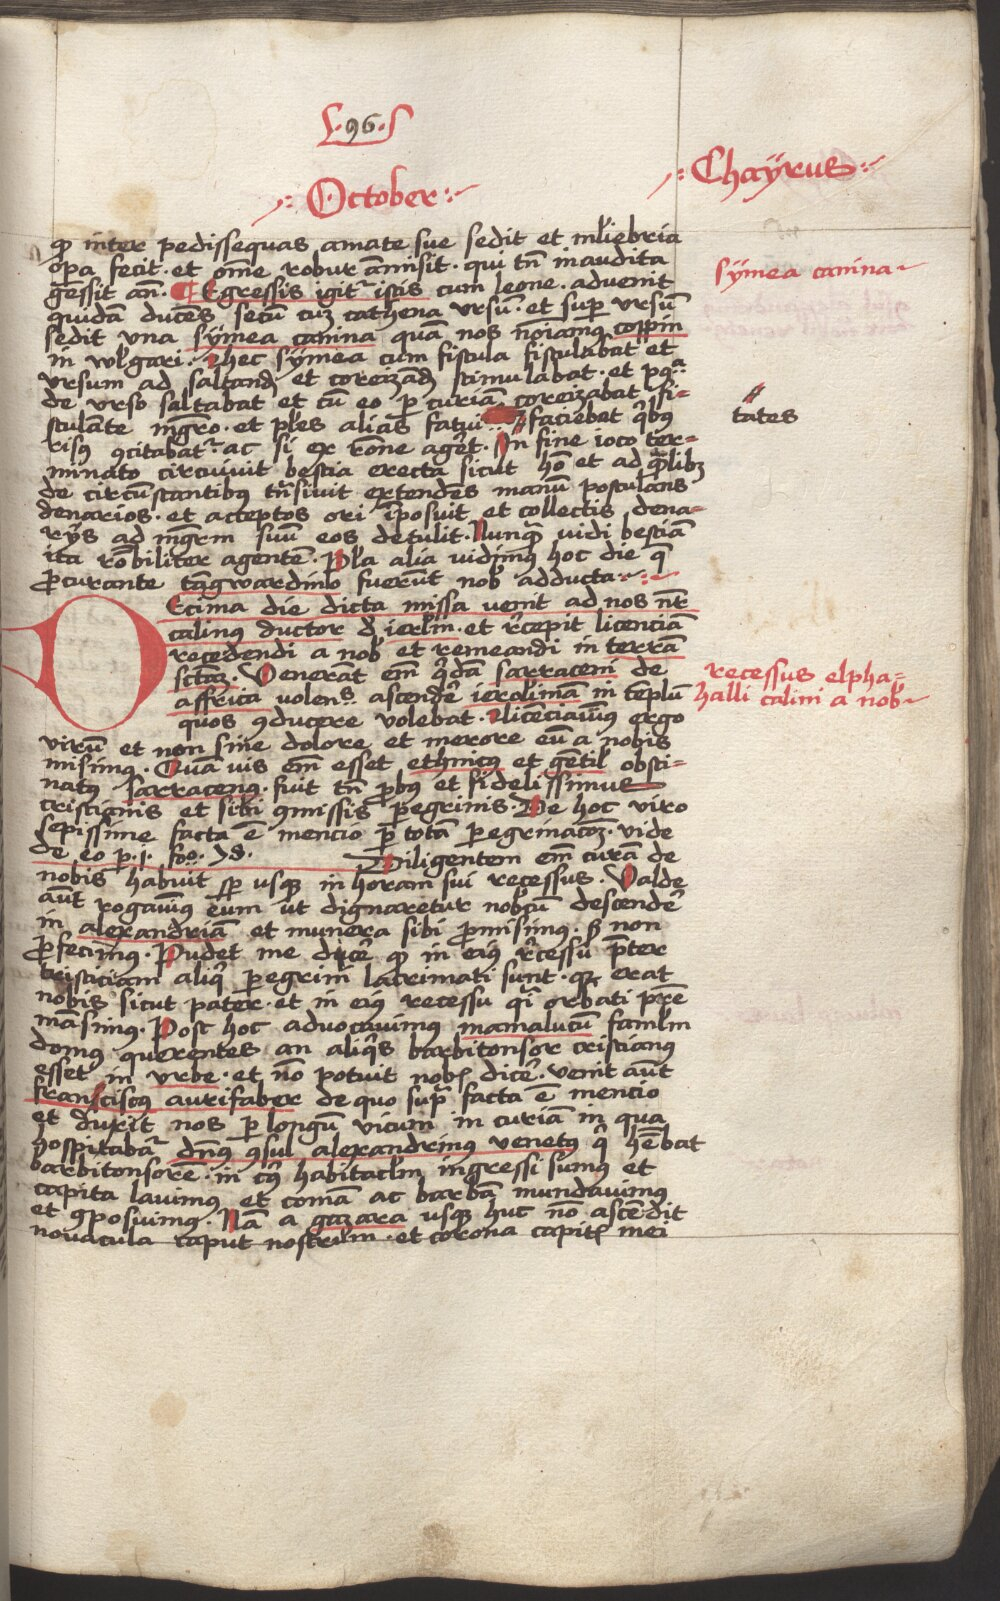 96
October
Chaÿrus
qͦ inter pedissequas amate sue sedit et ml̅iebria
oꝑa fecit · et om̅e robur a̅misit · qui tn̅ inaudita
gessit an̅ · Egressis igit᷑ istis cum leone · advenit
quida̅ duce̅s secu̅ cuz cathena vrsu̅ · et suꝑ vrsu̅
sedit una sÿmea canina qua̅ nos no̅i̅amꝰ coppin
in wl̅gari · hec sÿmea cum fistula fistulabat et
vrsum ad saltand̅ et coreiza̅d̅ stimulabat · et
de vrso saltabat et cu̅ eo ꝑ curia̅ coreizabat fi-
stula̅te mg̅ro · et pl̅es alias fatui // faciebat qͥbꝰ
risꝰ ꝯcitabat᷑ · ac si ex ro̅ne ag̅et · In fine ioco ter-
minato circuivit bestia erecta sicut ho̅ et ad qͣlibꝫ
de circu̅stantibꝰ tn̅sivit extende̅s manu̅ postulans
denarios · et acceptos ori i̅posuit et collectis dena-
rÿs ad mg̅rm suu̅ eos detulit · Nunqͣ vidi bestia̅
ita ro̅biliter agente̅ · Pl̅a alia vidimꝰ hoc die q̅
ꝓcurante ta̅gwardino fueru̅t nob̅ adducta
Decima die dicta missa venit ad nos nr̅
calinꝰ ductor d̅ ierl̅m · et r̅cepit licencia̅
recedendi a nob̅ et remeandi in terra̅
sc̅ta̅z · Venera̅t em̅ qͥda̅ sarraceni de
affrica volens ascende̅r ierolima̅ in te̅plu̅
quos ꝯducere volebat · licenciavimꝰ ergo
viru̅ et non sine dolore et merore eu̅ a nobis
misimꝰ · Qua̅ vis em̅ esset ethnicꝰ et ge̅til̅ obsti-
natꝰ sarracenꝰ · fuit tn̅ ꝓbꝰ et fidelissimus
cristianis et sibi ꝯmissis ꝑegrinis · De hoc viro
sepissime facta e̅ mencio ꝑ tota̅ ꝑegrinaco̅z · vide
de eo p · j · fo · Diligentem em̅ cura̅ de
nobis habuit sꝑ usqꝫ in horam sui recessus · Valde
aut̅ rogavimꝰ eum ut dignaretur nobcu̅ descende̅r
in alexandria̅ et munera sibi ꝓmisimꝰ · sꝫ non
ꝓfecimꝰ · Pudet me dice̅r qͦ in eiꝰ r̅cessu p̅ter
tristiciam aliqͥ ꝑegrini lacrimati sunt · qꝫ erat
nobis sicut pater · et in eiꝰ recessu qͣi orbati pr̅e
ma̅simꝰ · Post hoc advocavimus mamalucu̅ faml̅m
domꝰ querentes an aliqͥs barbitonsor cristianꝰ
esset in vrbe · et no̅ potuit nob̅ dice̅r · venit aut̅
franciscꝰ aurifaber de quo supͣ facta e̅ mencio
et duxit nos ꝑ longu̅ vicum in curia̅ in qua
hospitaba᷑ dn̅ꝰ ꝯsul alexandrinꝰ venetꝰ qͥ he̅bat
barbitonsore̅ · in cꝰ habitacl̅m ingressi sumꝰ et
capita lavimus et coma̅ ac barba̅ mundavimus
et ꝯposuimꝰ · Na̅ a gazara usqꝫ huc no̅ asce̅dit
novacula caput nostrum · et corona capitꝭ mei
sÿmea canina
// tates
recessus elpha-
halli calini a nob̅